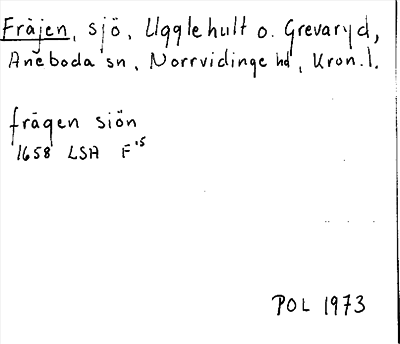 Fräjen, sjö, Ugglehult o. Grevaryd,
Aneboda sn, Norrvidinge hd, Kron.l.
frägen siön
1658 LSA F'5
POL 1973